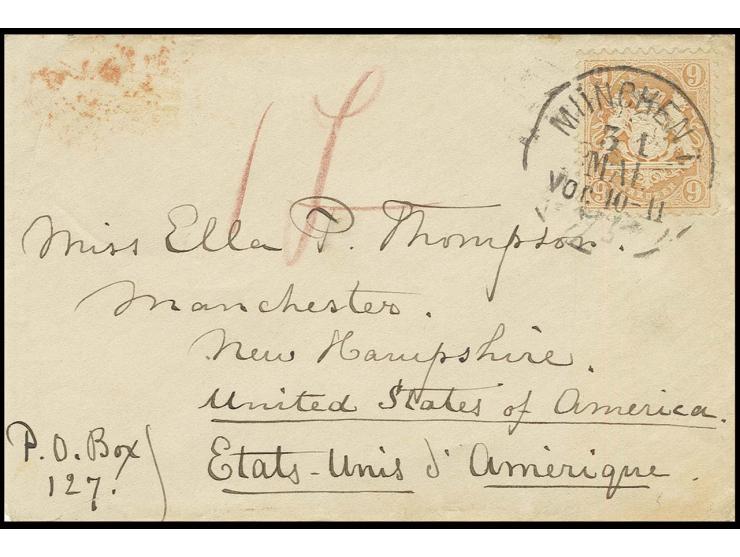 9 9
MÜNCHEN I
31
MAI.
VOR. 10-11
9 9
Miss Ella P. Thompson.
Manchester.
New Hampshire.
United States of America.
P.O. Box
127.
Etats-Unis d'Amérique.